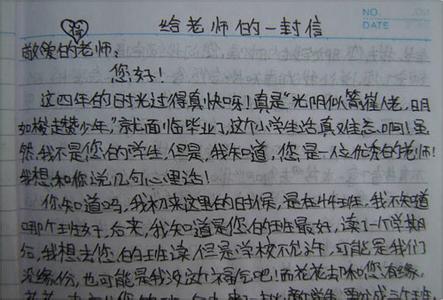 给老师的一封信
NO.
DATE
敬爱的老师：
您好！
这四年的时光过得真快呀！真是“光阴似箭催人老，日月
如梭趱少年，”就面临毕业了，这个小学生活真难忘啊！虽
然，我不是您的学生，但是，我知道，您是一位优秀的老师！
我想和你说几句心里话！
你知道吗，我初来这里的时候，是在4班，我不知道
哪个班好，后来，我知道是您的班最好，读了一个学期
后，我想去您的班读，但是学校不允许，可能是我们
没缘份，也可能是我没这个福气吧！而花花去你和您有缘，